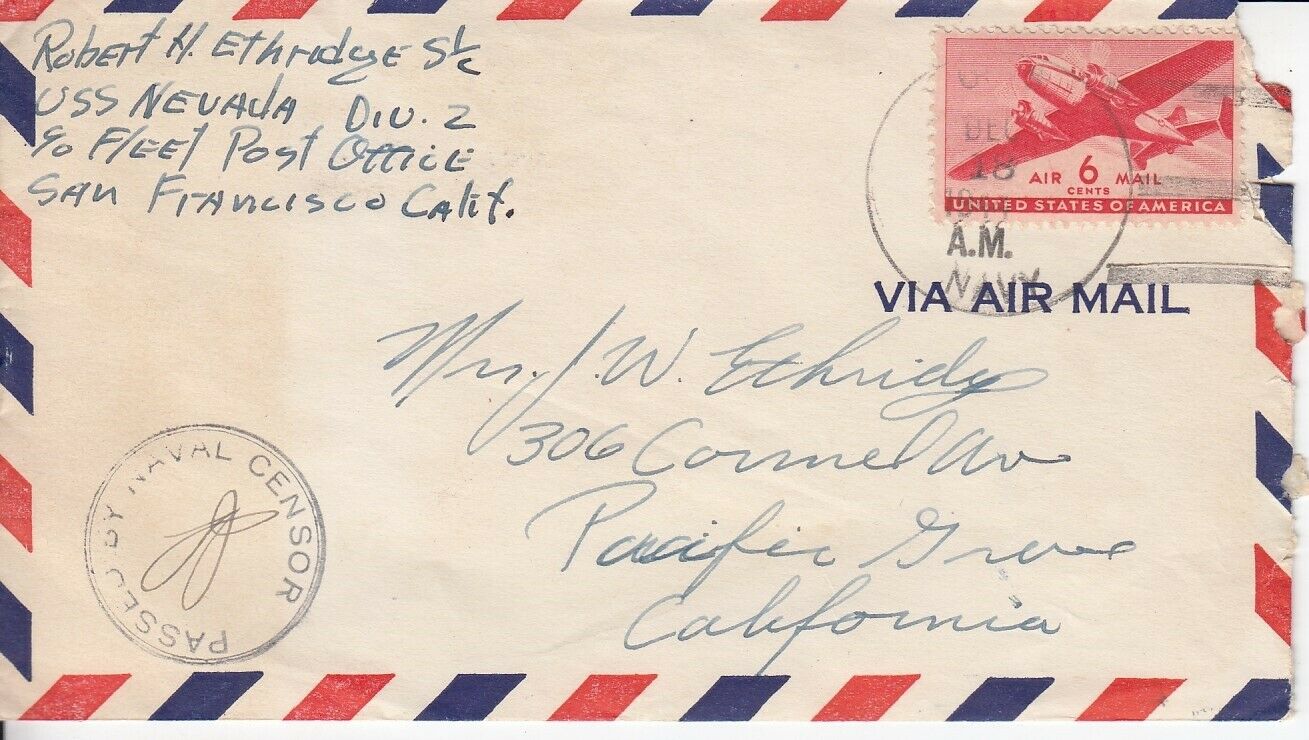 Robert H. Ethridge S1/c
USS NEVADA DIV. 2
c/o Fleet Post Office
San Francisco Calif.
DEC
18
A.M.
NAVY
AIR 6 MAIL
CENTS
UNITED STATES OF AMERICA
VIA AIR MAIL
J. W. Ethridge
306 Carmel Av
Pacific Grove
California
PASSED BY NAVAL CENSOR